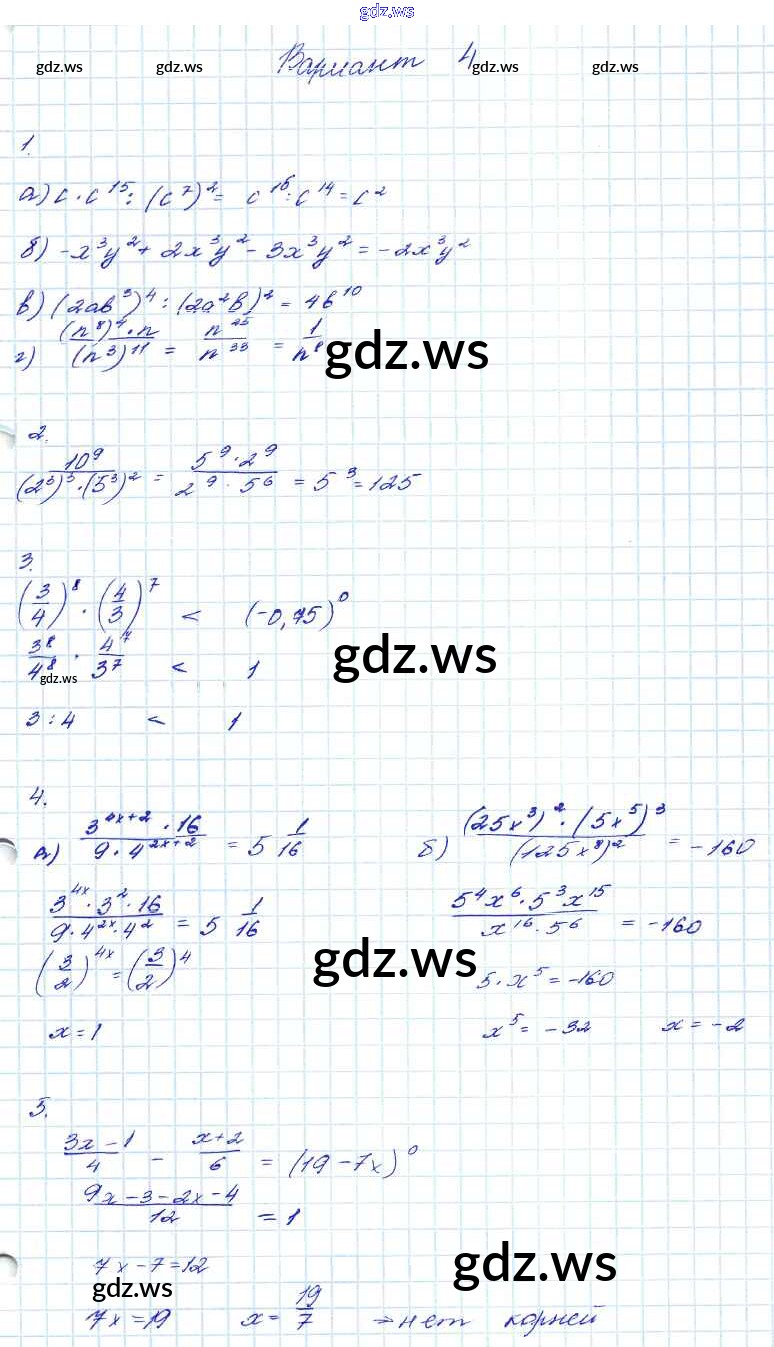 gdz.ws
Вариант 4
gdz.ws gdz.ws gdz.ws gdz.ws
1.
а) c · c¹⁵ : (c⁷)² = c¹⁶ : c¹⁴ = c²
б) -x³y² + 2x³y² - 3x³y² = -2x³y²
в) (2ab³)⁴ : (2a²b)² = 4b¹⁰
г) (n⁸)⁴ · n / (n³)¹¹ = n²⁵ / n³³ = 1 / n⁸
gdz.ws
2.
10⁹ / (2³)³ · (5³)² = 5⁹ · 2⁹ / 2⁹ · 5⁶ = 5³ = 125
3.
(3/4)⁸ · (4/3)⁷ < (-0,75)⁰
3⁸/4⁸ · 4⁷/3⁷ < 1
gdz.ws gdz.ws
3 : 4 < 1
4.
а) 3⁴ˣ⁺² · 16 / 9 · 4²ˣ⁺² = 5 1/16
б) (25x³)² · (5x⁵)³ / (125x⁸)² = -160
3⁴ˣ · 3² · 16 / 9 · 4²ˣ · 4² = 5 1/16
5⁴x⁶ · 5³x¹⁵ / x¹⁶ · 5⁶ = -160
(3/2)⁴ˣ = (3/2)⁴
gdz.ws
5 · x⁵ = -160
x = 1
x⁵ = -32 x = -2
5.
3x - 1 / 4 - x + 2 / 6 = (19 - 7x)⁰
9x - 3 - 2x - 4 / 12 = 1
7x - 7 = 12
gdz.ws gdz.ws
7x = 19 x = 19/7 → нет корней